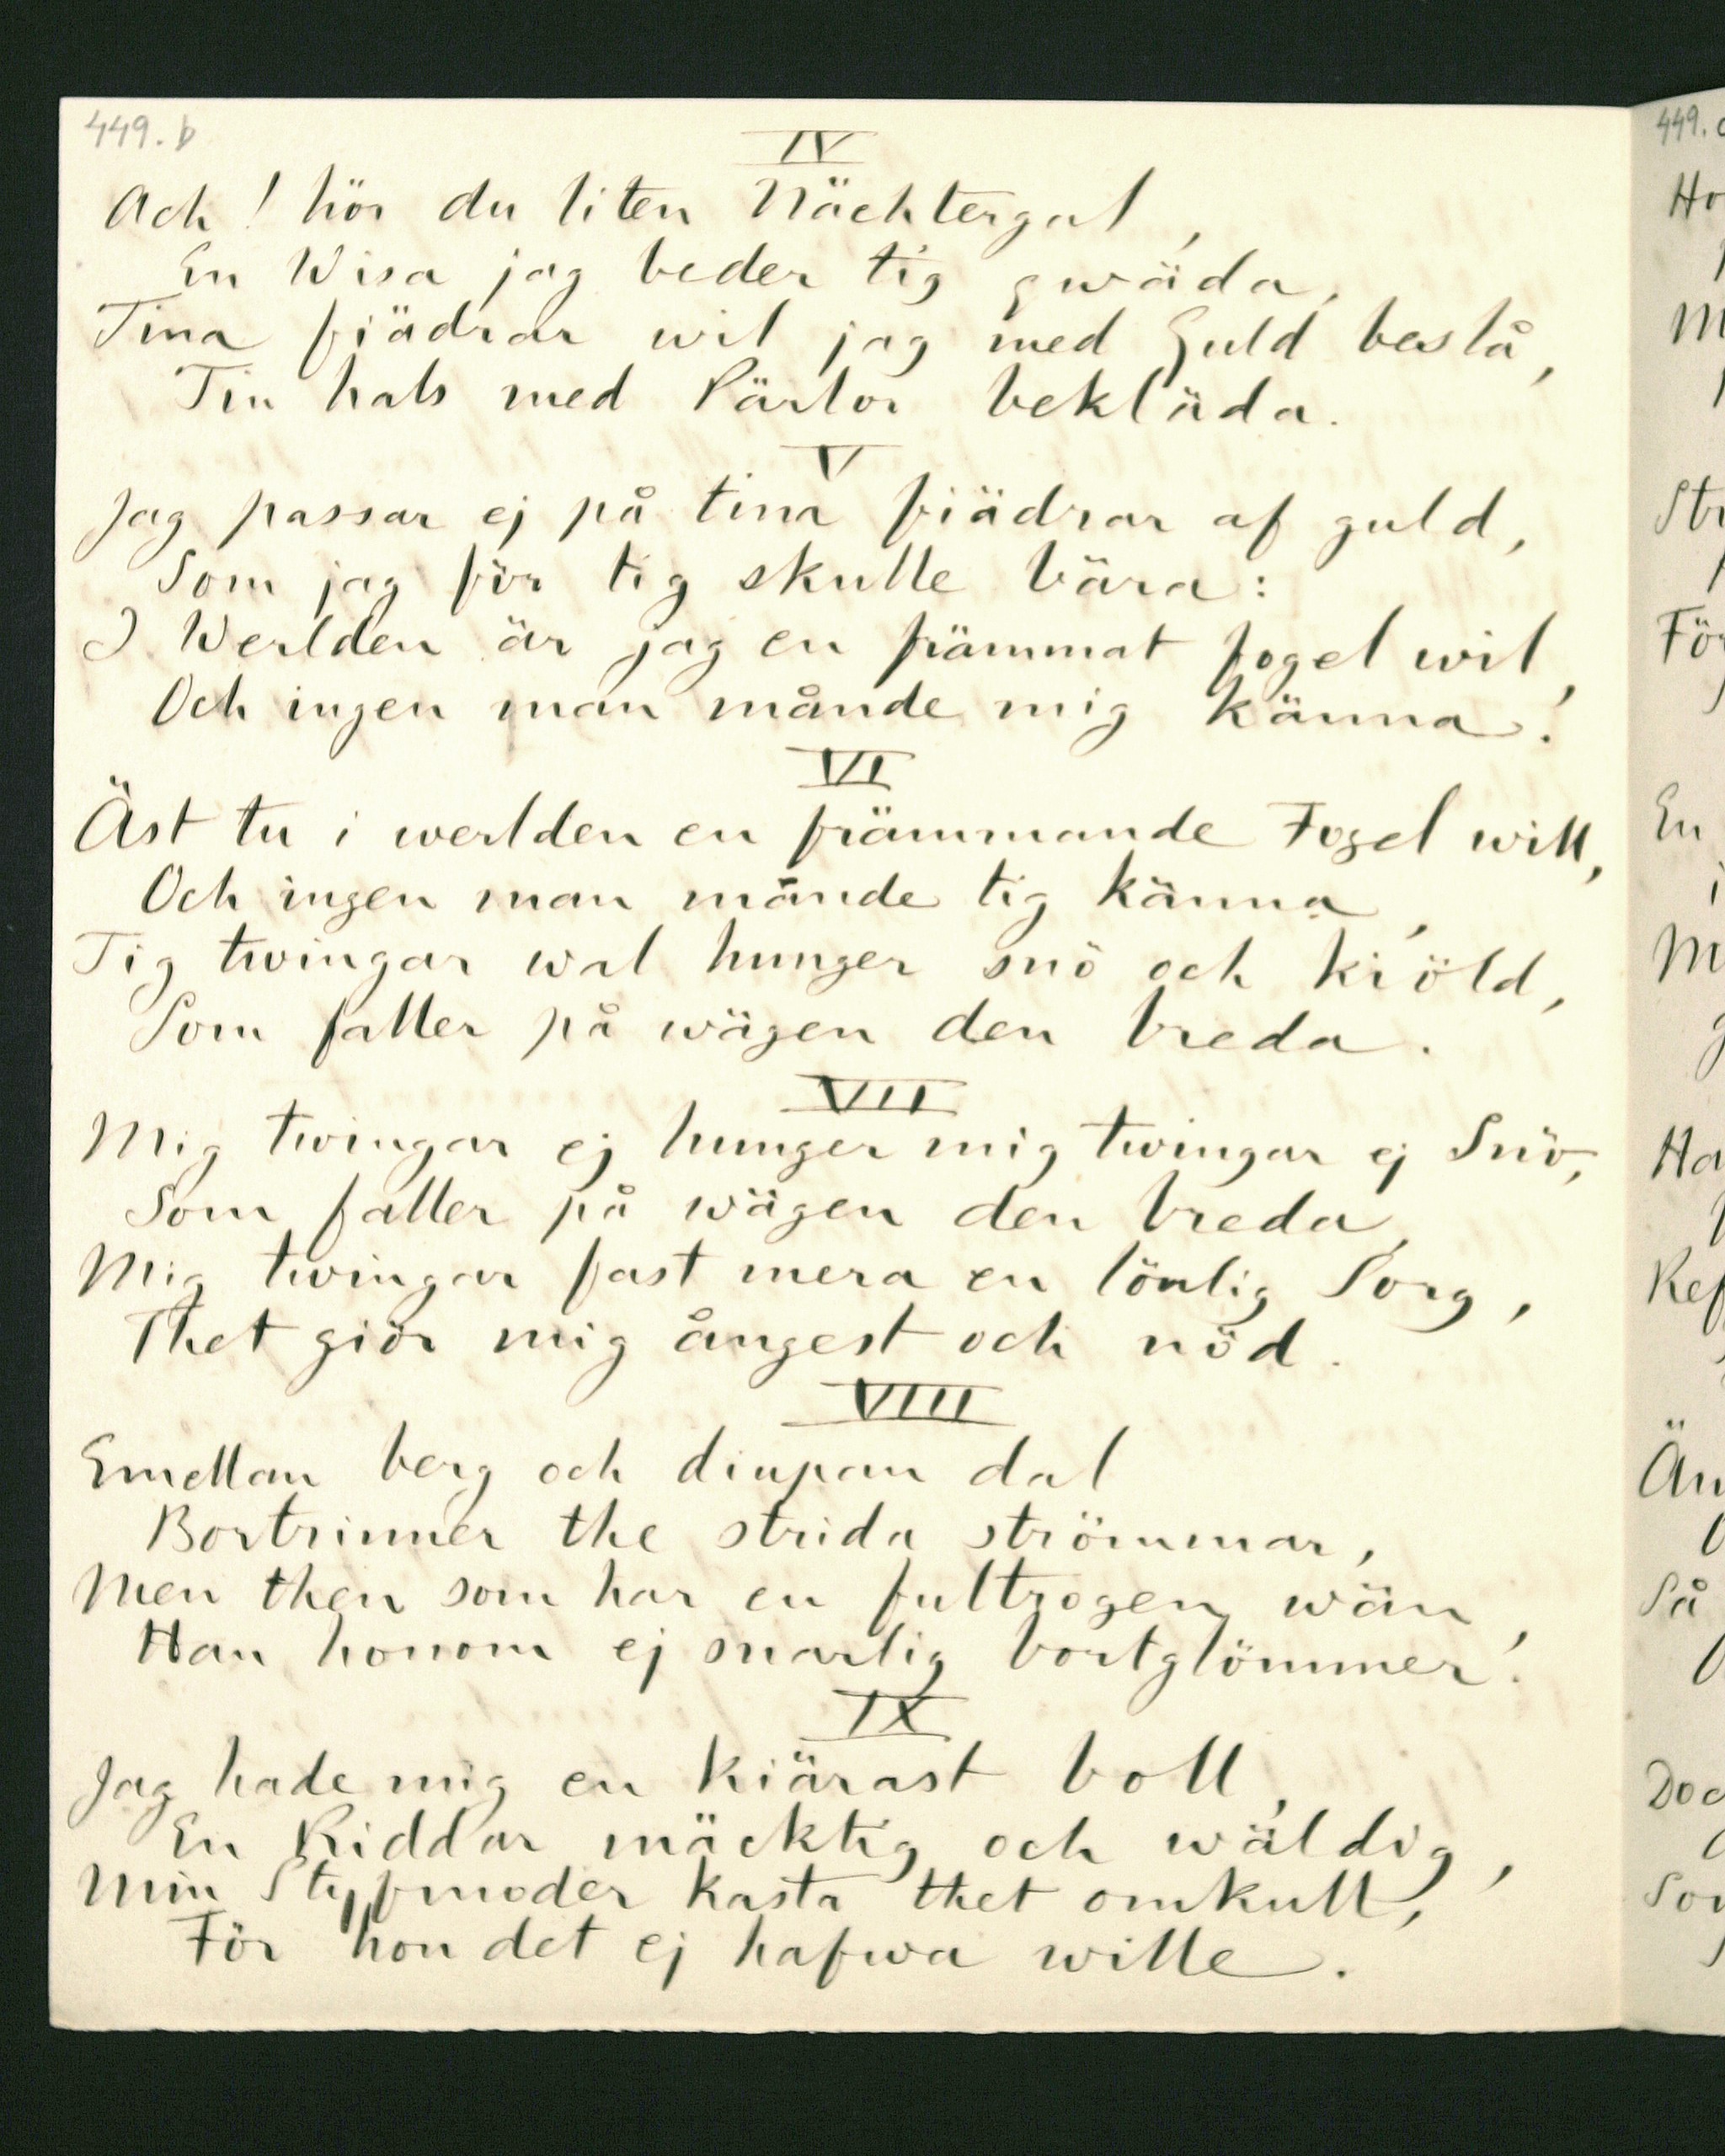 449. b
IV
Ach! hör du liten Nächtergal,
En Wisa jag beder tig qwäda,
Tina fiädrar wil jag med Guld beslå,
Tin hals med Pärlor bekläda.
V
Jag passar ej på tina fiädrar af guld,
Som jag för tig skulle bära:
I Werlden är jag en främmat fogel wil,
Och ingen man månde mig känna.
VI
Äst tu i werlden en främmande Fogel will,
Och ingen man månde tig känna,
Tig twingar wal hunger snö och kiöld,
Som faller på wägen den breda.
VII
Mig twingar ej hunger mig twingar ej Snö,
Som faller på wägen den breda,
Mig twingar fast mera en lönlig Sorg,
Thet giör mig ångest och nöd.
VIII
Emellan berg och diupan dal
Bortrinner the strida strömmar,
Men then som har en fultrogen wän,
Han honom ej snarlig bortglömmer.
IX
Jag hade mig en kiärast boll,
En Riddar mäcktig och wäldig,
Min Styfmoder kasta thet omkull,
För hon det ej hafwa wille.
449.
Ho
M
Str
För
En
i
M
g
Ha
Ref
Än
Så
Doc
Som